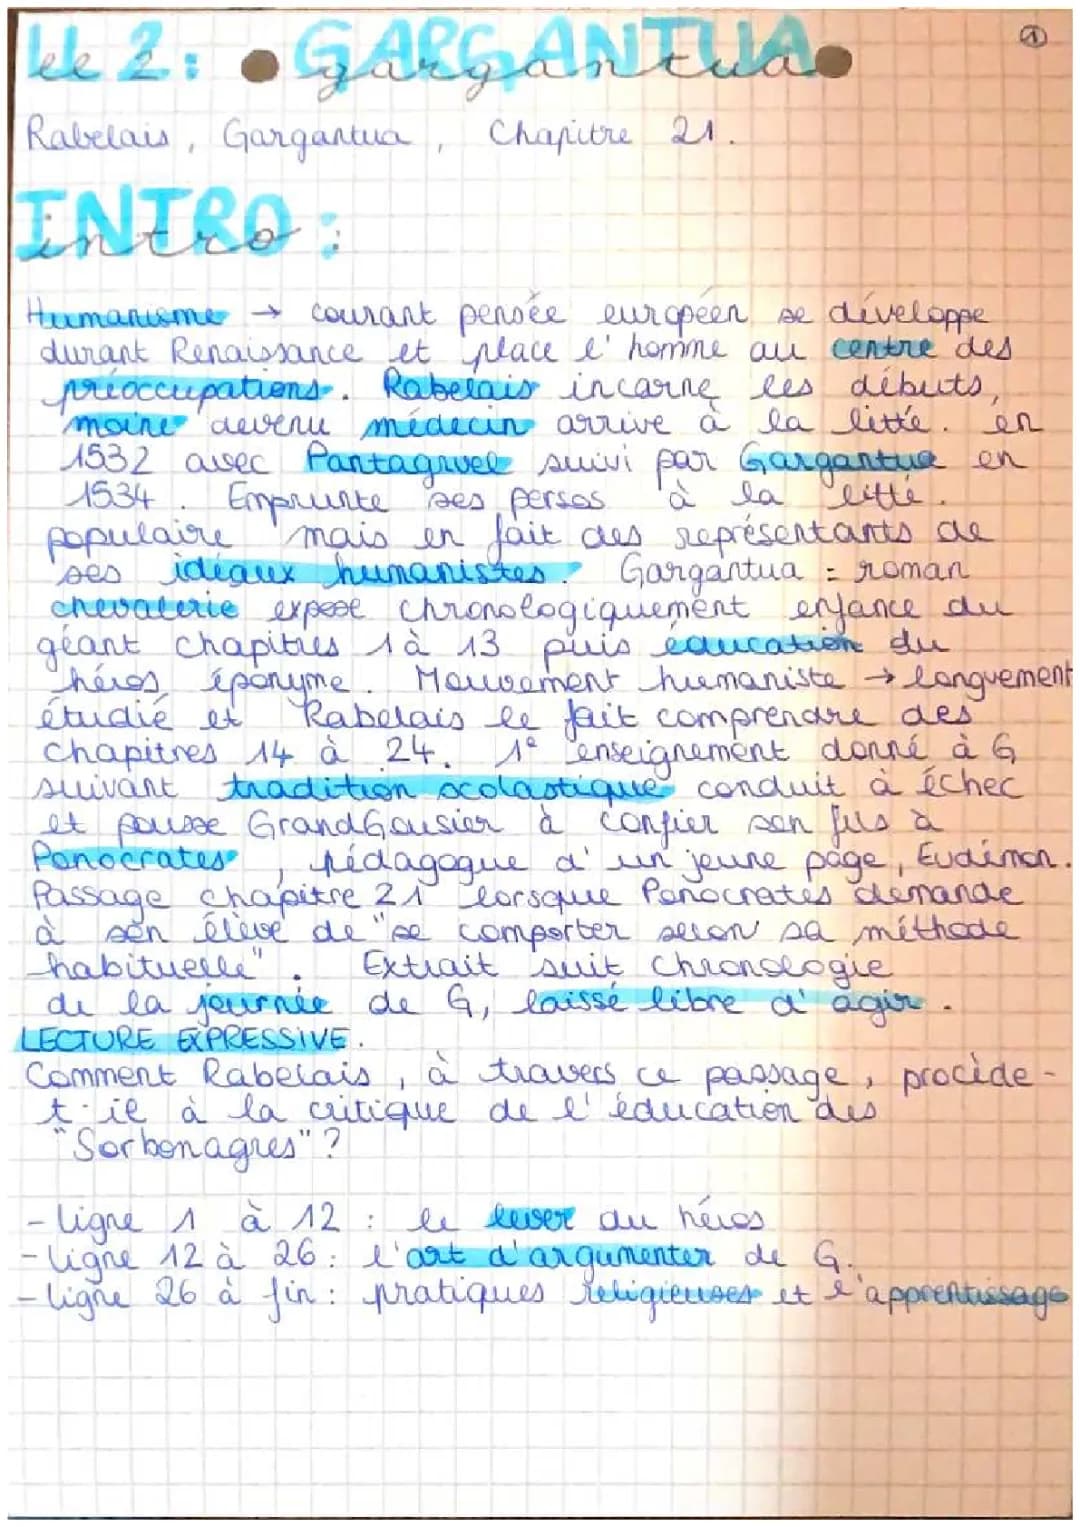 ①
LL 2: GARGANTUA
ll 2: gargantua
Rabelais, Gargantua, Chapitre 21.
INTRO:
intro:
Humanisme → courant pensée européen se développe
durant Renaissance et place l'homme au centre des
préoccupations. Rabelais incarne les débuts,
moine devenu médecin arrive à la litté. en
1532 avec Pantagruel suivi par Gargantua en
1534. Emprunte ses persos à la litté.
populaire mais en fait des représentants de
ses idéaux humanistes. Gargantua = roman
chevalerie expose chronologiquement enfance du
géant chapitres 1 à 13 puis éducation du
héros éponyme. Mouvement humaniste → longuement
étudié et Rabelais le fait comprendre des
chapitres 14 à 24. 1° enseignement donné à G
suivant tradition scolastique conduit à échec
et pousse GrandGousier à confier son fils à
Ponocrates, pédagogue d'un jeune page, Eudémon.
Passage chapitre 21 lorsque Ponocrates demande
à son élève de "se comporter selon sa méthode
habituelle". Extrait suit chronologie
de la journée de G, laissé libre d'agir.
LECTURE EXPRESSIVE.
Comment Rabelais, à travers ce passage, procède-
t-il à la critique de l'éducation des
"Sorbonagres"?
- ligne 1 à 12 : le lever du héros
- ligne 12 à 26 : l'art d'argumenter de G.
- ligne 26 à fin : pratiques religieuses et l'apprentissage